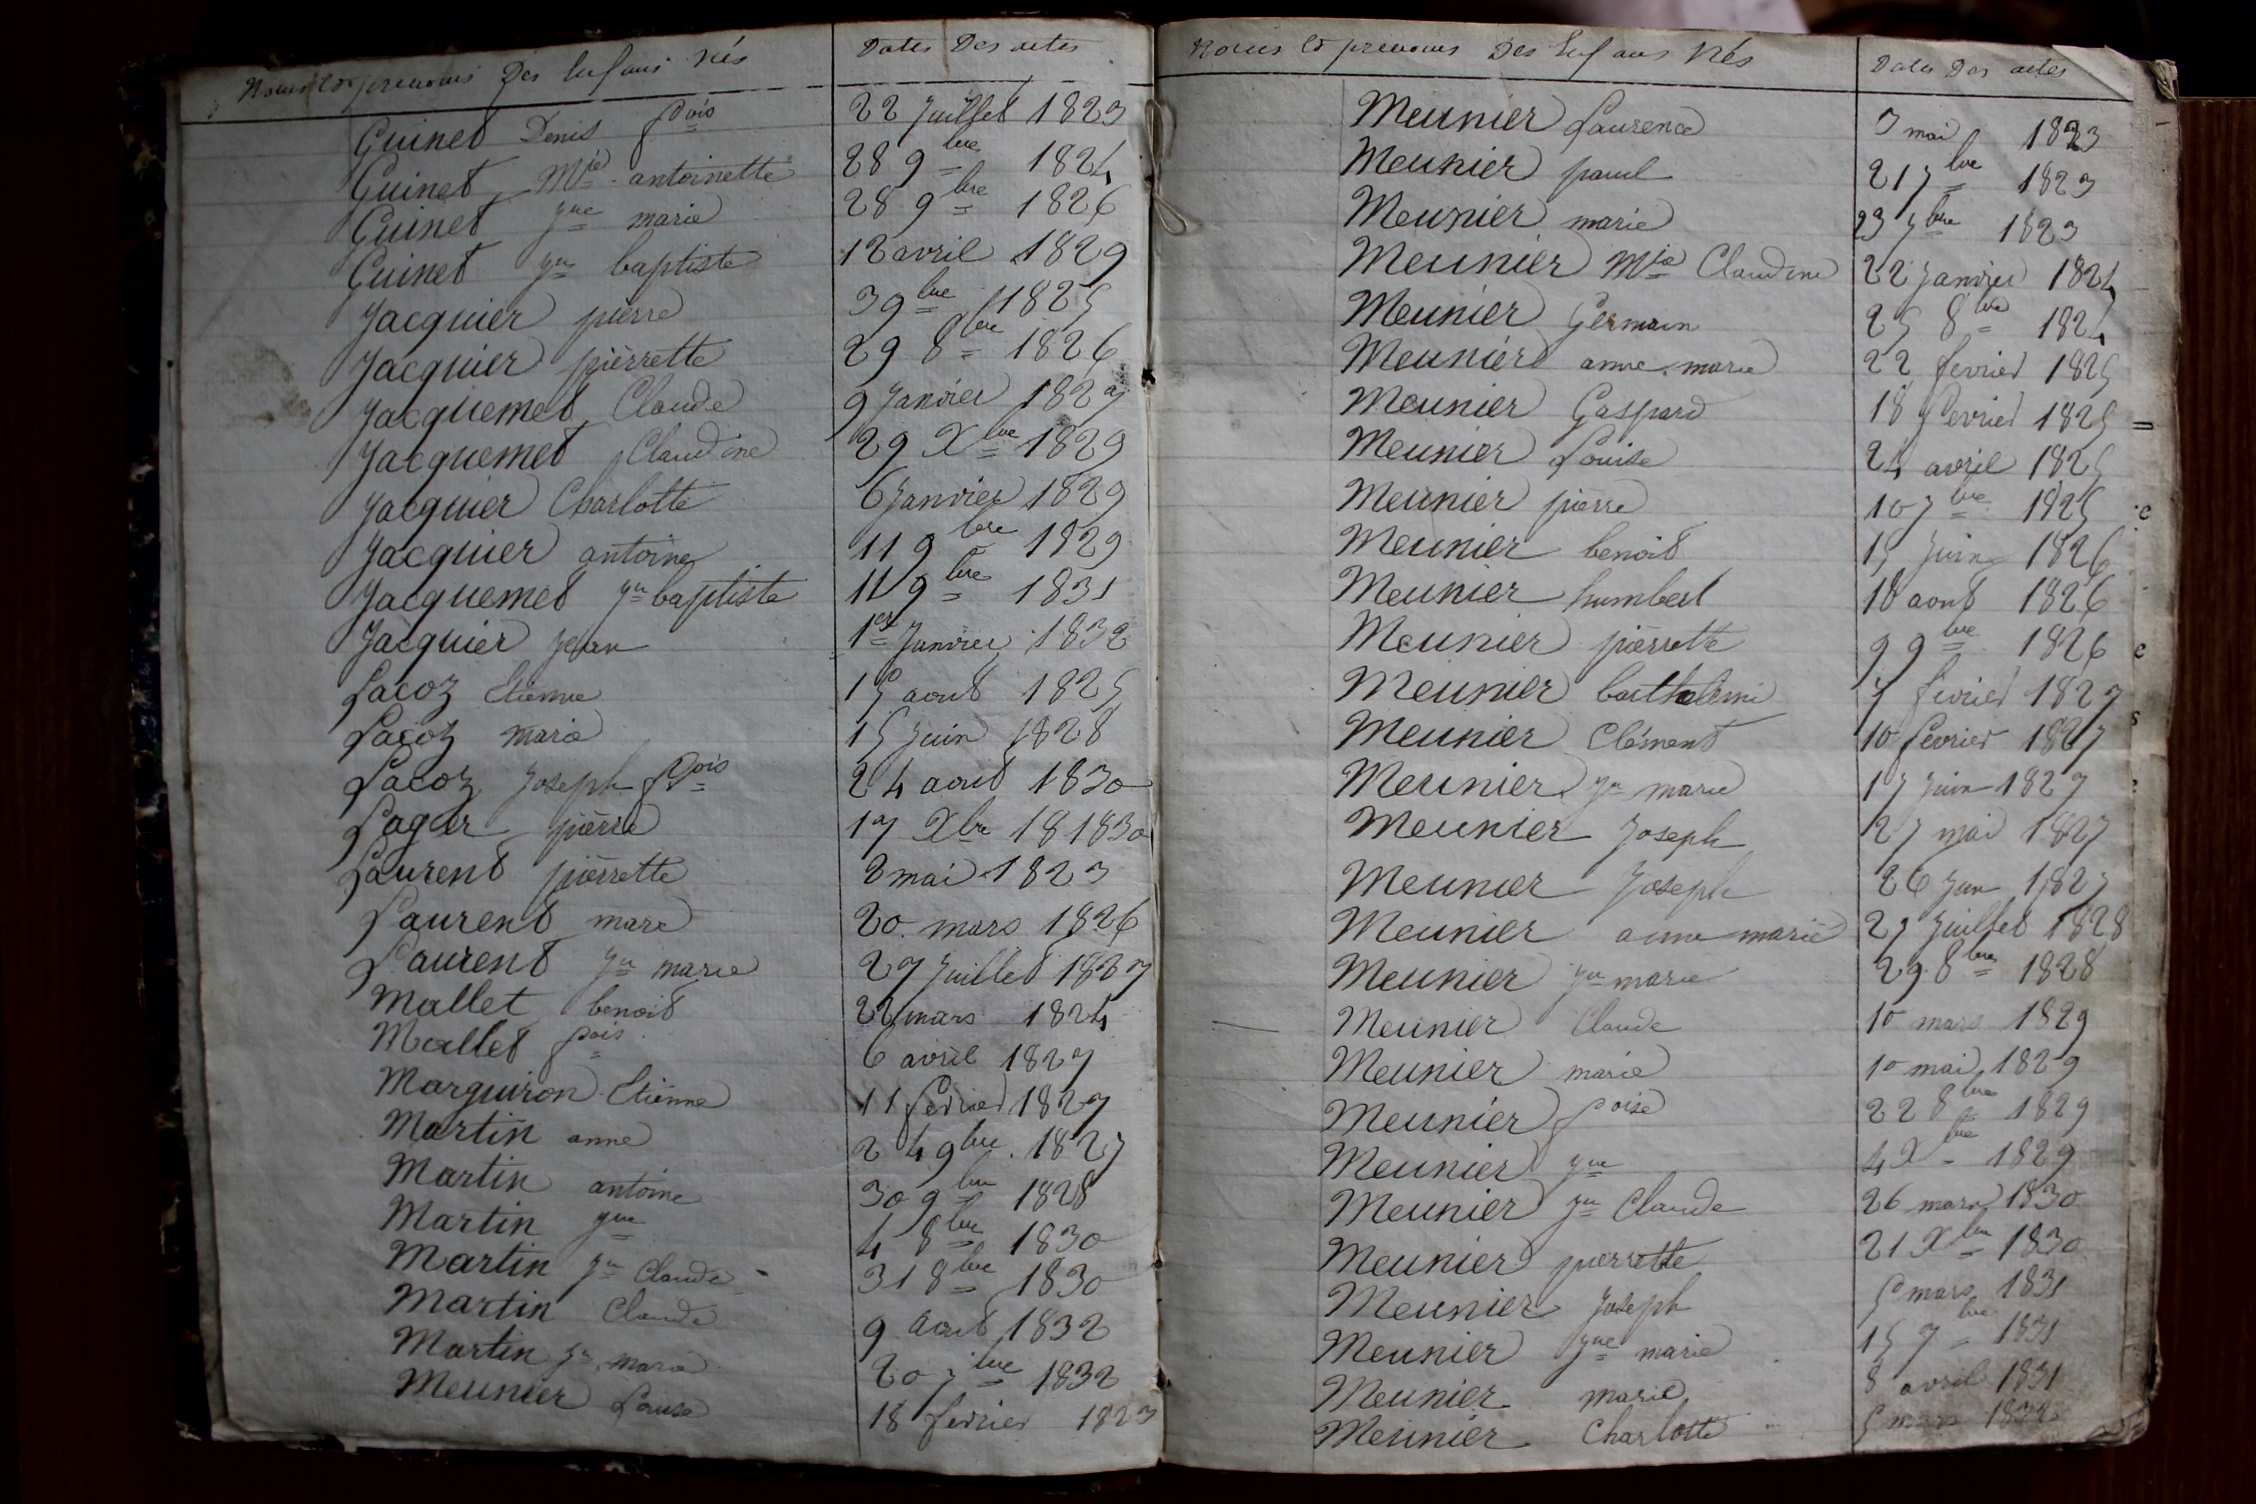 Noms et prenoms Des Enfans Nés
Dates Des actes
Guinet Denis fçois 22 Juillet 1823
Guinet Mie antoinette 28 9bre 1824
Guinet Jne marie 28 9bre 1826
Guinet Jn baptiste 12 avril 1829
Jacquier pierre 3 9bre 1825
Jacquier pierrette 29 8bre 1826
Jacquemet Claude 9 Janvier 1827
Jacquemet Claudine 29 Xbre 1829
Jacquier Charlotte 6 Janvier 1829
Jacquier antoine 11 9bre 1829
Jacquemet Jn baptiste 11 9bre 1831
Jacquier Jean 1er Janvier 1832
Lacoz Etienne 15 aout 1825
Lacoz marie 15 Juin 1828
Lacoz Joseph fçois 24 aout 1830
Lager pierre 17 Xbre 18 1830
Laurent pierrette 2 mai 1823
Laurent marie 20 mars 1826
Laurent Jn marie 27 Juillet 1827
Mallet benoit 22 mars 1824
Mallet fçois 6 avril 1827
Marguiron Etienne 11 fevrier 1827
Martin anne 24 9bre 1827
Martin antoine 30 9bre 1828
Martin Jne 4 8bre 1830
Martin Jn Claude 31 8bre 1830
Martin Claude 9 Aout 1832
Martin Jn marie 20 7bre 1832
Meunier Louise 18 fevrier 1823
Noms et prenoms Des Enfans Nés
Dates Des actes
Meunier Laurence 3 mai 1823
Meunier paul 21 7bre 1823
Meunier marie 23 7bre 1823
Meunier Mie Claudine 22 Janvier 1824
Meunier Germain 25 8bre 1824
Meunier anne marie 22 fevrier 1825
Meunier Gaspard 18 fevrier 1825
Meunier Louise 24 avril 1825
Meunier pierre 10 7bre 1825
Meunier benoit 15 Juin 1826
Meunier humbert 18 aout 1826
Meunier pierrette 9 9bre 1826
Meunier barthelemi 7 fevrier 1827
Meunier Clément 10 fevrier 1827
Meunier Jn marie 17 Juin 1827
Meunier Joseph 27 mai 1827
Meunier Joseph 26 Jun 1827
Meunier anne marie 27 Juillet 1828
Meunier Jn marie 29 8bre 1828
Meunier Claude 10 mars 1829
Meunier marie 10 mai 1829
Meunier fçoise 22 8bre 1829
Meunier Jne 4 Xbre 1829
Meunier Jn Claude 26 mars 1830
Meunier pierrette 21 Xbre 1830
Meunier Joseph 5 mars 1831
Meunier Jne marie 15 7bre 1831
Meunier marie 8 avril 1831
Meunier Charlotte 5 mars 1832